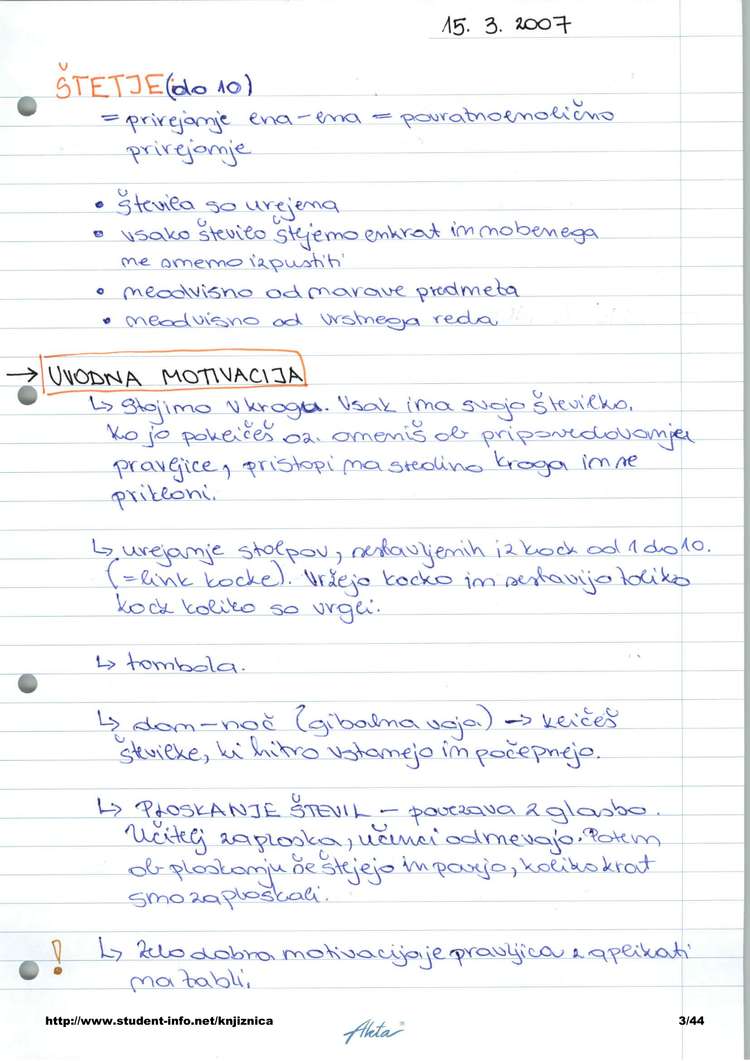 15. 3. 2007
ŠTETJE (do 10)
= prirejanje ena-ena = povratnoenolično
prirejanje
• števila so urejena
• vsako število štejemo enkrat in nobenega
ne smemo izpustiti
• neodvisno od narave predmeta
• neodvisno od vrstnega reda
→ UVODNA MOTIVACIJA
↳ Stojimo v krogu. Vsak ima svojo številko,
ko jo pokličeš oz. omeniš ob pripovedovanju
pravljice, pristopi na sredino kroga in se
prikloni.
↳ urejanje stolpov, sestavljenih iz kock od 1 do 10.
(=link kocke). Vržejo kocko in sestavijo toliko
kock koliko so vrgli.
↳ tombola.
↳ dan-noč (gibalna vaja) → kličeš
številke, ki hitro vstanejo in počepnejo.
↳ PLOSKANJE ŠTEVIL – povezava z glasbo.
Učitelj zaploska, učenci odmevajo. Potem
ob ploskanju še štejejo in povejo, kolikokrat
smo zaploskali.
! ↳ Zelo dobra motivacija je pravljica z aplikati
na tabli.
http://www.student-info.net/knjiznica
Akta
3/44